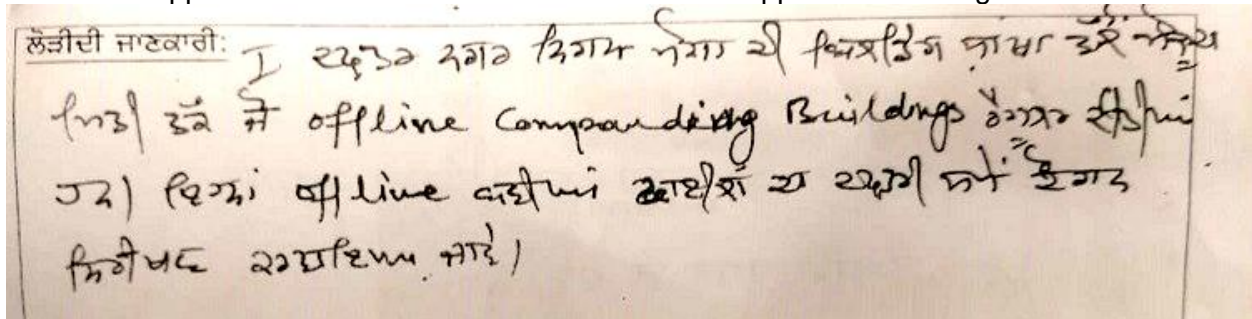 ਲੋੜੀਦੀ ਜਾਣਕਾਰੀ: I ਦਫ਼ਤਰ ਨਗਰ ਨਿਗਮ ਮੋਗਾ ਦੀ ਬਿਲਡਿੰਗ ਸ਼ਾਖਾ ਵੱਲੋਂ ਮੌਜੂਦਾ
ਮਿਤੀ ਤੱਕ ਜੋ offline Compounding Buildings ਰੈਗੂਲਰ ਕੀਤੀਆਂ
ਹਨ। ਇਹਨਾਂ offline ਫਾਈਲਾਂ ਦਾ ਦਫ਼ਤਰੀ ਸਮੇਂ ਦੌਰਾਨ
ਨਿਰੀਖਣ ਕਰਵਾਇਆ ਜਾਵੇ।